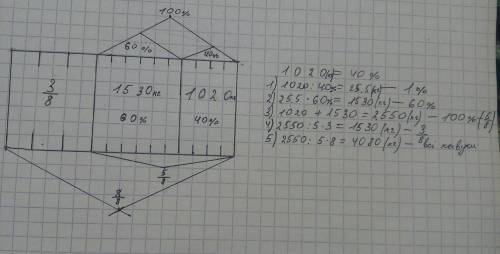 100%
60%
40%
3/8
1530кг
1020кг
60%
40%
5/8
8/8
1020(кг) = 40%
1) 1020 : 40% = 25,5(кг) — 1%
2) 25,5 · 60% = 1530(кг) — 60%
3) 1020 + 1530 = 2550(кг) — 100% (5/8)
4) 2550 : 5 · 3 = 1530(кг) — 3/8
5) 2550 : 5 · 8 = 4080(кг) — всі кавуни